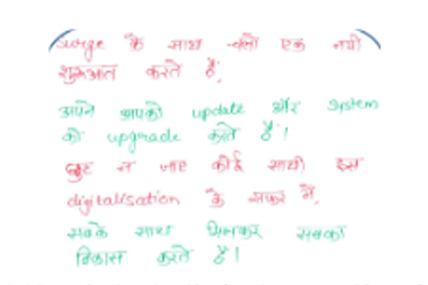 surge के साथ चलो एक नयी
शुरूआत करते हैं,
अपने आपको update और system
को upgrade करते हैं।
छुट न जाए कोई साथी इस
digitalisation के सफर में,
सबके साथ मिलकर सबका
विकास करते हैं।